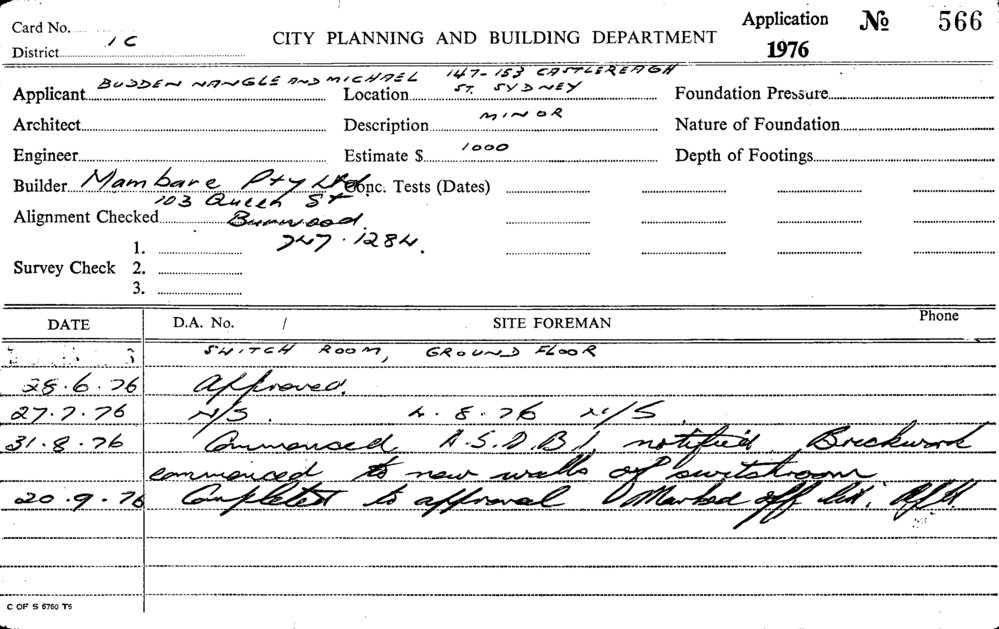 Card No.
District 1C
CITY PLANNING AND BUILDING DEPARTMENT
Application No 566
1976
Applicant BUDDEN NANGLE AND MICHAEL
Location 147-153 CASTLEREAGH ST. SYDNEY
Foundation Pressure
Architect
Description MINOR
Nature of Foundation
Engineer
Estimate $ 1000
Depth of Footings
Builder Mambare Pty Ltd.
103 Queen St
Burwood
747.1284.
Conc. Tests (Dates)
Alignment Checked
Survey Check 1.
2.
3.
DATE D.A. No. / SITE FOREMAN Phone
SWITCH ROOM, GROUND FLOOR
28.6.76 Approved.
27.7.76 N/S. 4.8.76 N/S.
31.8.76 Commenced A.S.D.B.I. notified Brickwork
commenced to new walls of switchroom
20.9.76 Completed to approval Marked off list.
C OF S 6760 T5